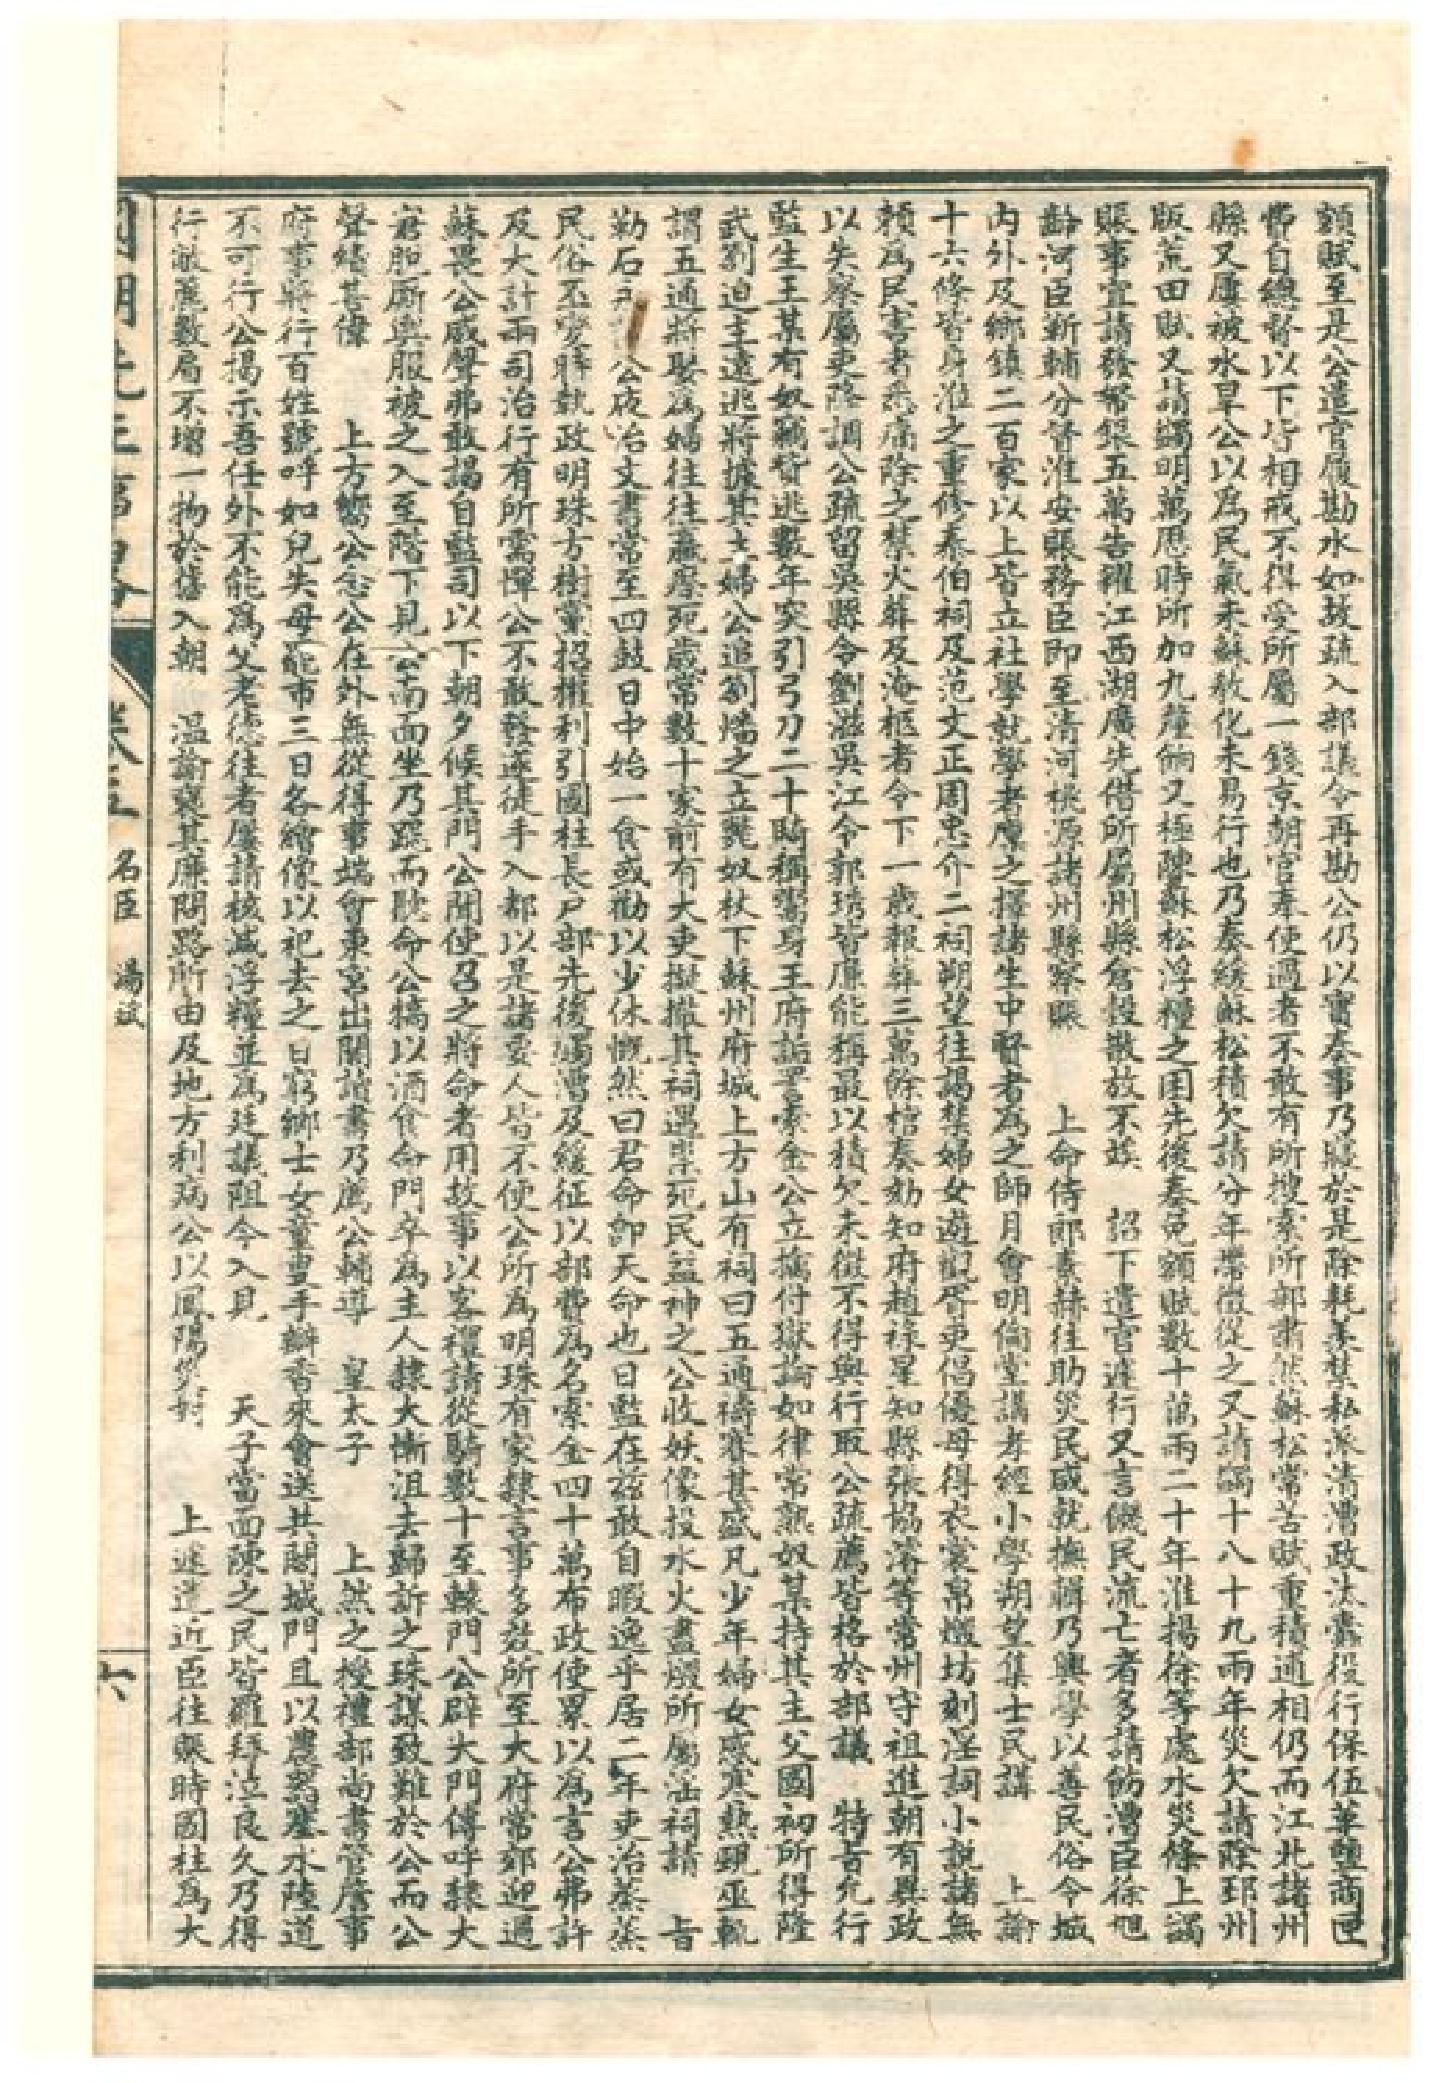 額賦至是公遣官履勘水如故疏入部議令再勘公仍以實奏事乃寢於是除耗羨禁私派清漕政汰蠹役行保伍革鹽商匣
費自總督以下皆相戒不得受所屬一錢京朝官奉使過者不敢有所搜索所部肅然蘇松常苦賦重積逋相仍而江北諸州
縣又屢被水旱公以為民氣未蘇教化未易行也乃奏緩蘇松積欠請分年帶徵從之又請蠲十八十九兩年災欠請除邳州
版荒田賦又請蠲明萬歷時所加九釐餉又極陳蘇松浮糧之困先後奏免額賦數十萬兩二十年淮揚徐等處水災條上蠲
賑事宜請發帑銀五萬告糴江西湖廣先借所屬州縣倉穀散放不俟 詔下遣官遄行又言饑民流亡者多請飭漕臣徐旭
齡河臣靳輔分督淮安賑務臣即至清河桃源諸州縣察賑 上命侍郎素赫往助災民咸就撫輯乃興學以善民俗令城
內外及鄉鎮二百家以上皆立社學就學者廩之擇諸生中賢者為之師月會明倫堂講孝經小學朔望集士民講 上諭
十六條皆身淮之重修泰伯祠及范文正周忠介二祠朔望往謁禁婦女遊觀胥吏倡優毋得衣裘帛燬坊刻淫詞小說諸無
賴為民害者悉痛除之禁火葬及淹柩者令下一歲報葬三萬餘棺奏劾知府趙祿星知縣張協濬等常州守祖進朝有異政
以失察屬吏降調公疏留吳縣令劉滋吳江令郭琇皆廉能稱最以積欠未徵不得與行取公疏薦皆格於部議 特旨允行
監生王某有奴竊貲逃數年突引弓刀二十騎稱鬻身王府詬詈索金公立擒付獄論如律常熟奴某持其主父國初所得隆
武劄迫主遠逃將據其主婦公追劄燔之立斃奴杖下蘇州府城上方山有祠曰五通禱賽甚盛凡少年婦女感寒熱覡巫輒
謂五通將娶為婦往往羸瘠死歲常數十家前有大吏擬撤其祠遇祟死民益神之公收妖像投水火盡燬所屬淫祠請 旨
勒石 公夜治文書常至四鼓日中始一食或勸以少休慨然曰君命卽天命也日監在茲敢自暇逸乎居二年吏治蒸蒸
民俗丕變時執政明珠方樹黨招權利引國柱長戶部先後蠲漕及緩征以部費為名索金四十萬布政使累以為言公弗許
及大計兩司治行有所需憚公不敢發遂徒手入都以是諸要人皆不便公所為明珠有家隸言事多效所至大府常郊迎過
蘇畏公威聲弗敢謁自監司以下朝夕候其門公聞使召之將命者用故事以客禮請從騎數十至轅門公辟大門傳呼隸大
窘脫廝輿服被之入至階下見公南面坐乃跪而聽命公犒以酒食命門卒為主人隸大慚沮去歸訴之珠謀致難於公而公
聲績甚偉 上方嚮公念公在外無從得事端會東宮出閣讀書乃薦公輔導 皇太子 上然之授禮部尚書管詹事
府事將行百姓號呼如兒失母罷市三日各繪像以祀去之日窮鄉士女童叟手瓣香來會送共闔城門且以農器塞水陸道
不可行公揭示吾任外不能為父老德往者屢請核減浮糧並為廷議阻今入見 天子當面陳之民皆羅拜泣良久乃得
行敝簏數肩不增一物於舊入朝 溫諭褒其廉問路所由及地方利病公以鳳陽災對 上遂遣近臣往賑時國柱為大
國朝先正事略 卷五 名臣 湯斌 六